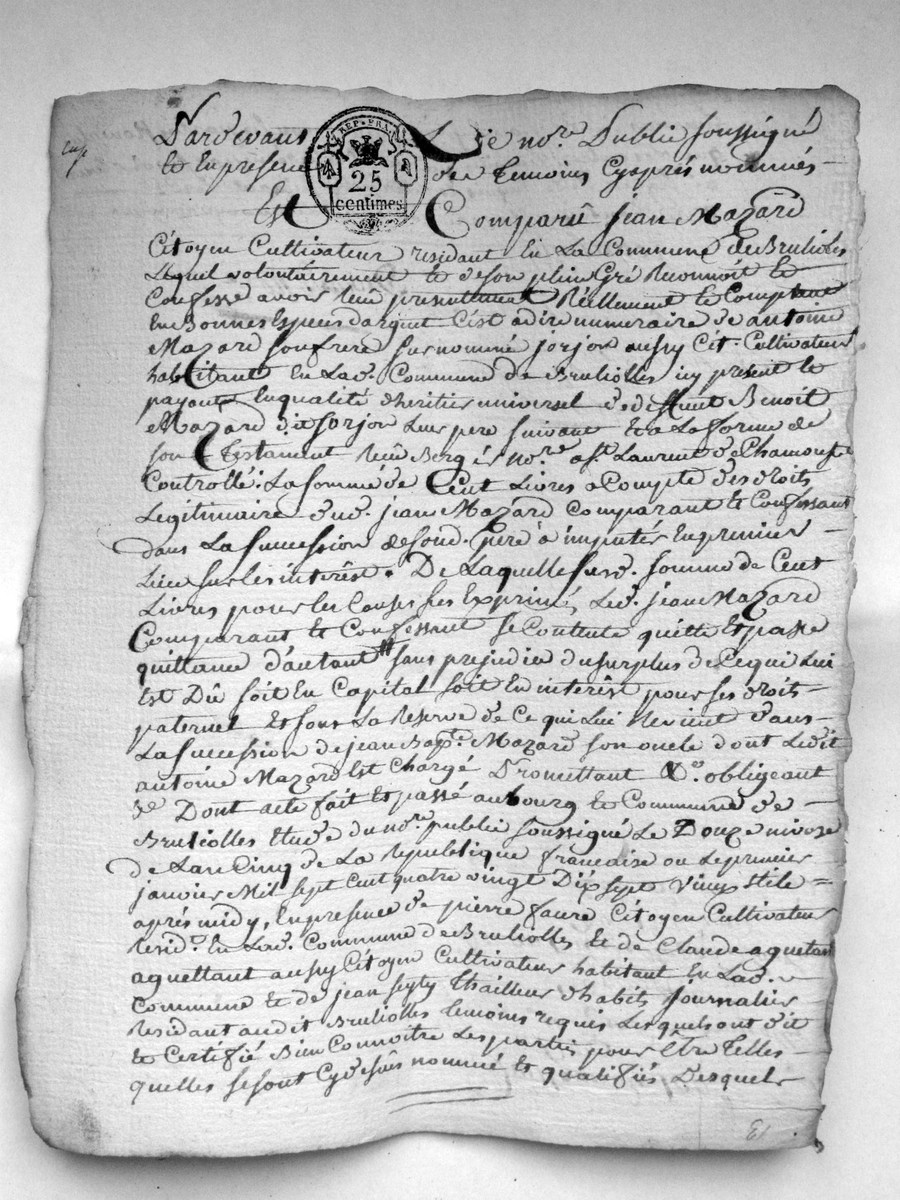 Pardevant Le no.re Public soussigné
REP. FRA.
25
centimes
et En presence des Temoins Cyaprés nommés
Est Comparû Jean Mazard
Citoyen Cultivateur residant En La Commune de Brulioles
Lequel volontairement et de son plein Gré Reconnoit et
Confesse avoir Reçu presentement Réellement et Comptant
En Bonnes Especes d'argent C'est adire numeraire de antoine
Mazard son frere surnommé jorjon aussy Cit. Cultivateur
habitant En Lad. Commune de Brulioles icy present et
payant En qualité d'heritier universel de deffunt Benoit
Mazard dit jorjon Leur pere suivant et a La forme de
son Testament Reçu Berger no.re a St. Laurent de Chamousset
Controllé. La somme de Cent Livres a Compte des droits
Legitimaire dud. jean Mazard Comparant et Confessant
dans La succession de sond. pere à imputer En premier
Lieu sur Les interêst. De Laquelle susd. somme de Cent
Livres pour les Causes sus Exprimé, Led. jean Mazard
Comparant et Confessant se Contente quitte Et passe
quittance d'autant sans prejudice du surplus de Ce qui Lui
Est Dû soit En Capital soit En interêst pour ses droits
paternel Et sous La Reserve de Ce qui Lui Revient dans
La succession de jean Bap.te Mazard son oncle dont Ledit
antoine Mazard Est Chargé Promettant &.o obligeant
&.e Dont acte fait Et passé au bourg et Commune de
Brulioles Etude du no.re public soussigné Le Douze nivose
de L'an Cinq de La Republique francaise ou Le premier
janvier Mil sept Cent quatre vingt Dix sept vieux stile
aprés midy, En presence de pierre faure Citoyen Cultivateur
Resid.t En Lad. Commune de Brulioles Et de Claude aquetant
aquettant aussy Citoyen Cultivateur habitant En Lad.
Commune Et de jean thailleur d'habits journalier
Residant audit Brulioles temoins requis Lesquels ont dit
et Certifié Bien Connoitre Les parties pour Etre telles
quelles se sont Cydessûs nommé et qualifiés Desquels